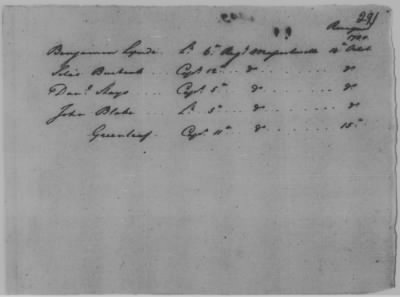 281
Resigned
1780
Benjamin Lynde .. Lt. 6th Regt. Massachusetts 12th Octr.
Silas Burbank ... Capt. 12th .. do ....... do
Danl. Shays .... Capt. 5th .... do ....... do
John Blake .... Lt. 5th .... do ....... do
Greenleaf .. Capt. 11th .. do ....... 15th